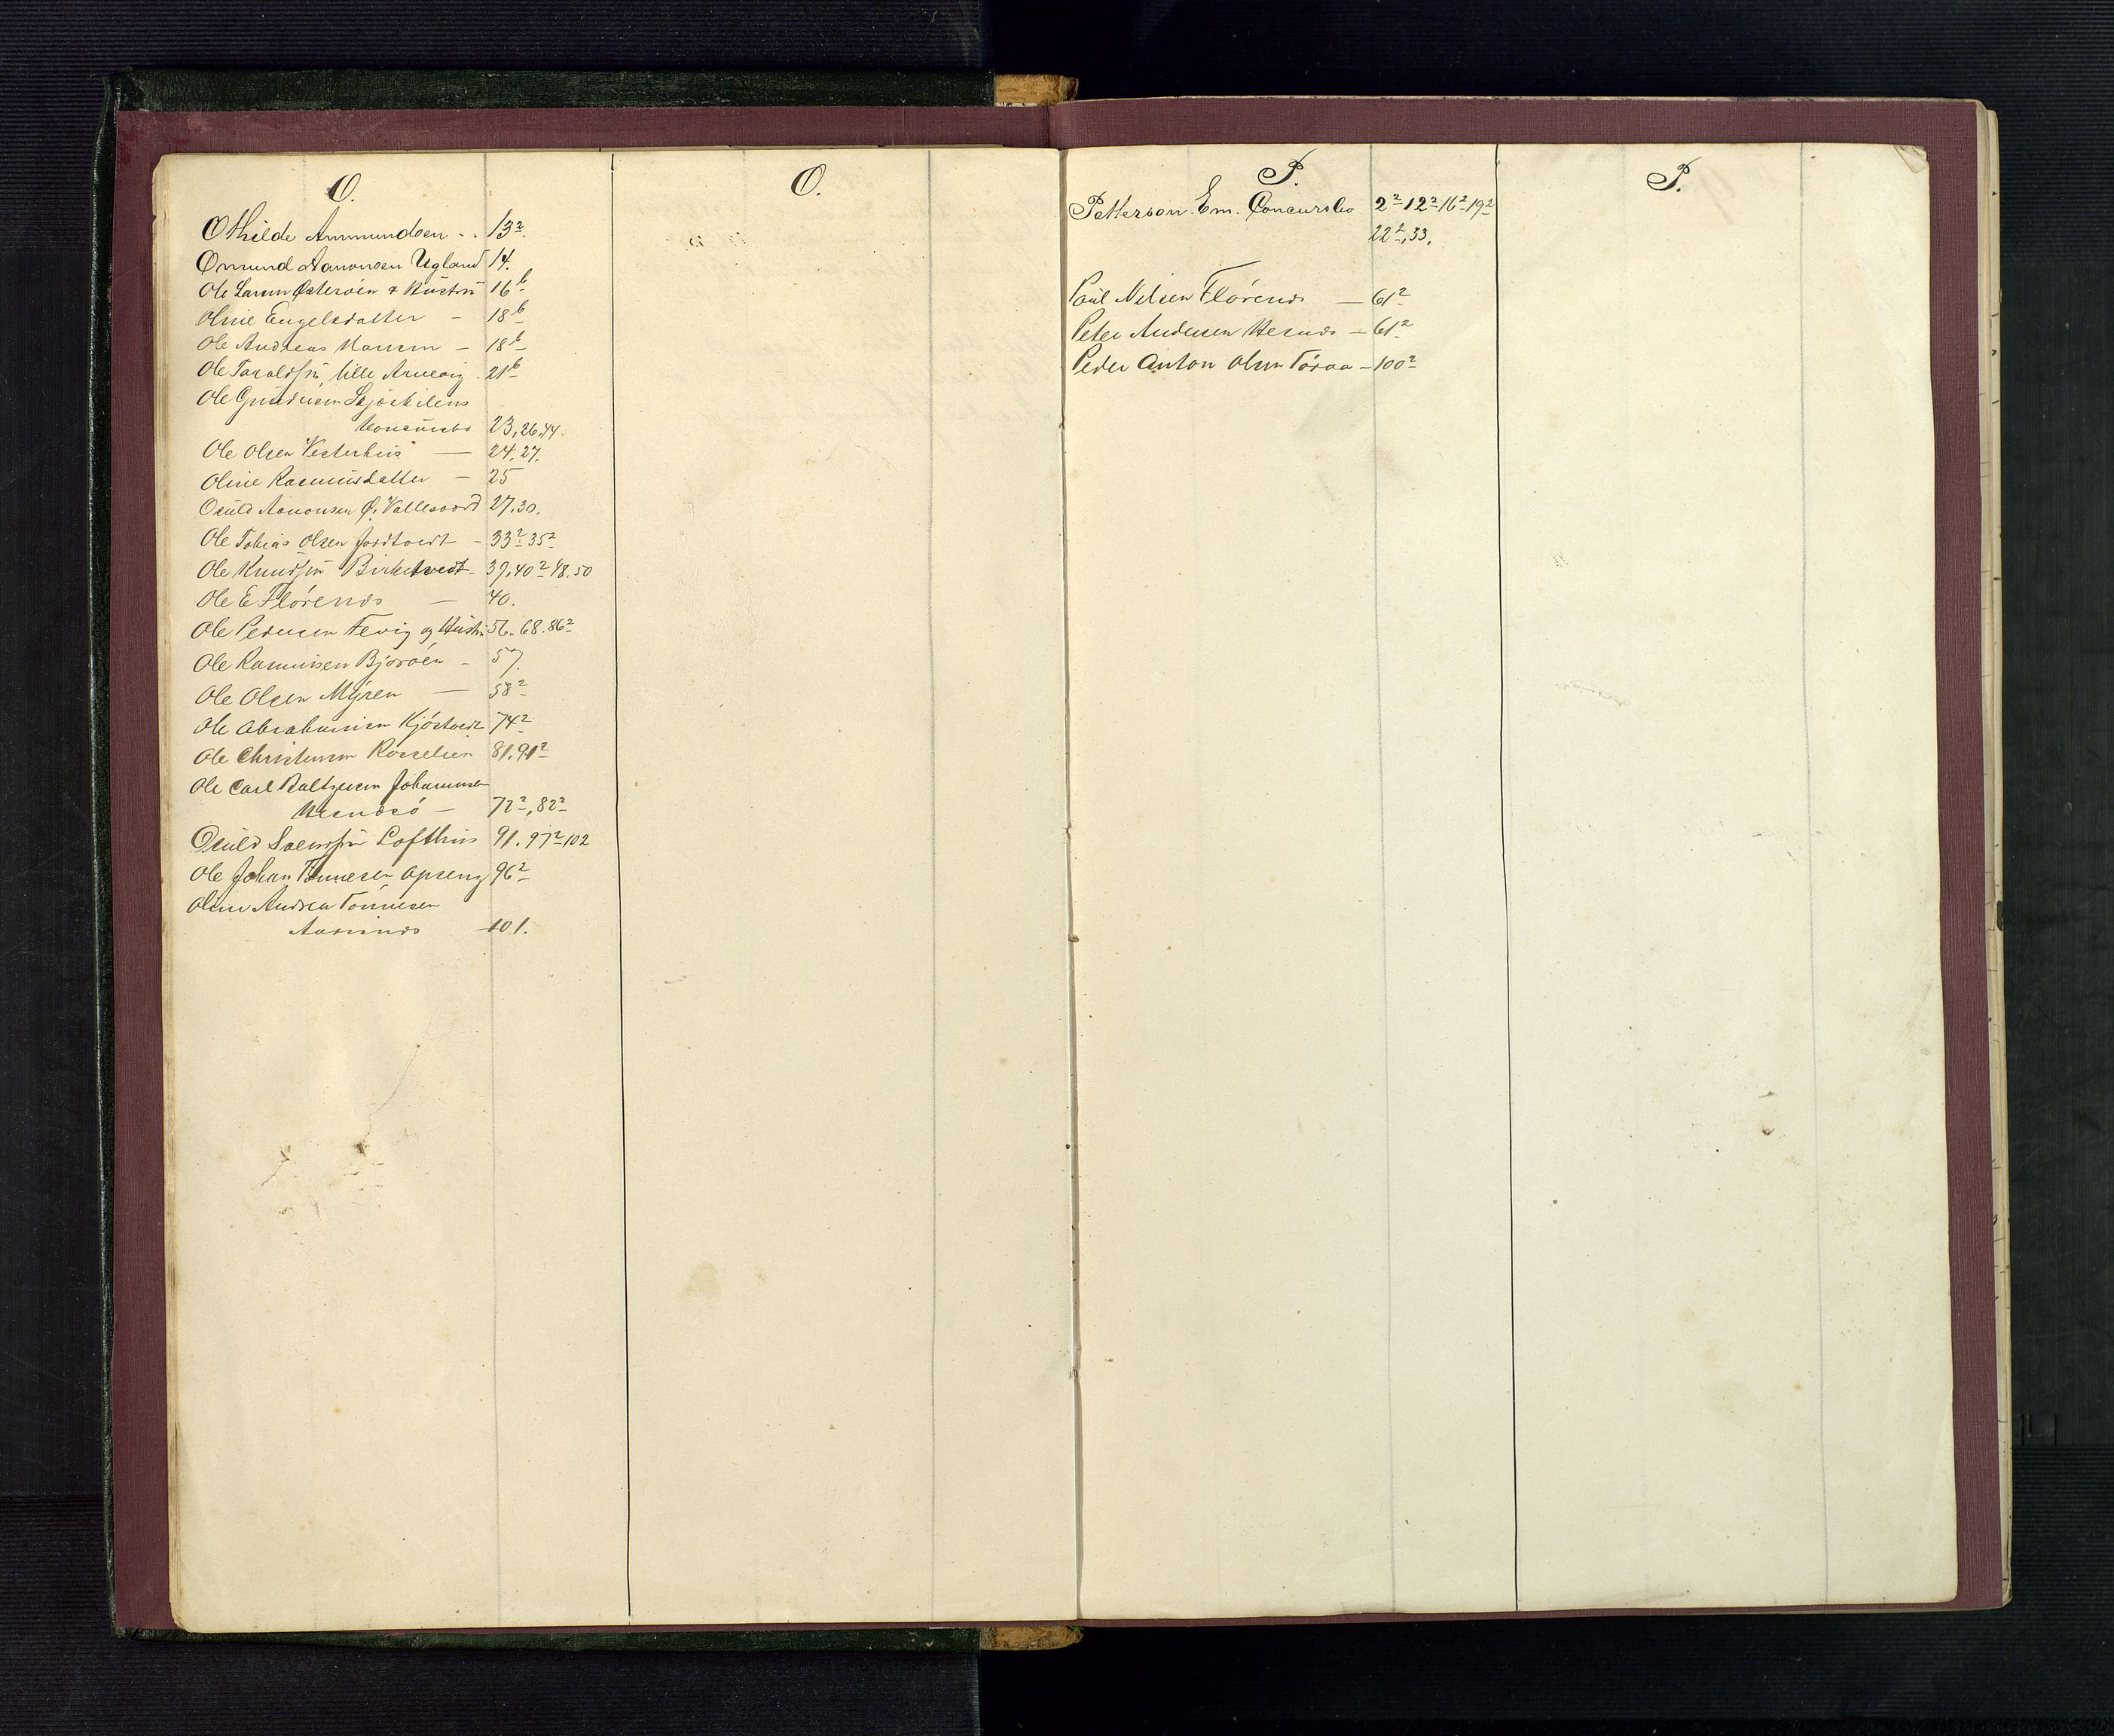 O.
Othilde Ammundsen - . 13²
Omund Aanonsen Ugland 14.
Ole Larsen Østerøen & Hustru 16b
Oline Engelsdatter - 18b
Ole Andreas Hansen - 18b
Ole Taraldsen, lille Arnevig. 21b
Ole Gundersen Skjoskilens
Concursbo 23, 26, 44.
Ole Olsen Vesterhus — 24. 27.
Oline Rasmusdatter - 25
Osuld Aanonsen Ø. Vallesverd 27. 30.
Ole Tobias Olsen Jordtvedt - 33² 35²
Ole Knudsen Birketvedt - 37. 40² 48. 50
Ole E Flørenæs — 40.
Ole Pedersen Fevig og Hustru 56. 68. 86²
Ole Rasmusen Bjorøen - 57.
Ole Olsen Myren — 58²
Ole Abrahamsen Kjøstvedt 74²
Ole Christensen Rosselien 81. 91²
Ole Carl Baltzersen Johannesen
Hesnæsø — 72², 82²
Osuld Svendsen Lofthus 91. 97² 102
Ole Johan Tønnesen Opseng 96²
Oline Andrea Tønnesen
101.
O.
P.
Petterson. Em. Concursbo 2² 12² 16² 19²
22², 33.
Paul Nilsen Flørenæs — 61²
Peter Andersen Hesnæs - 61²
Peder Anton Olsen Toraa - 100²
P.